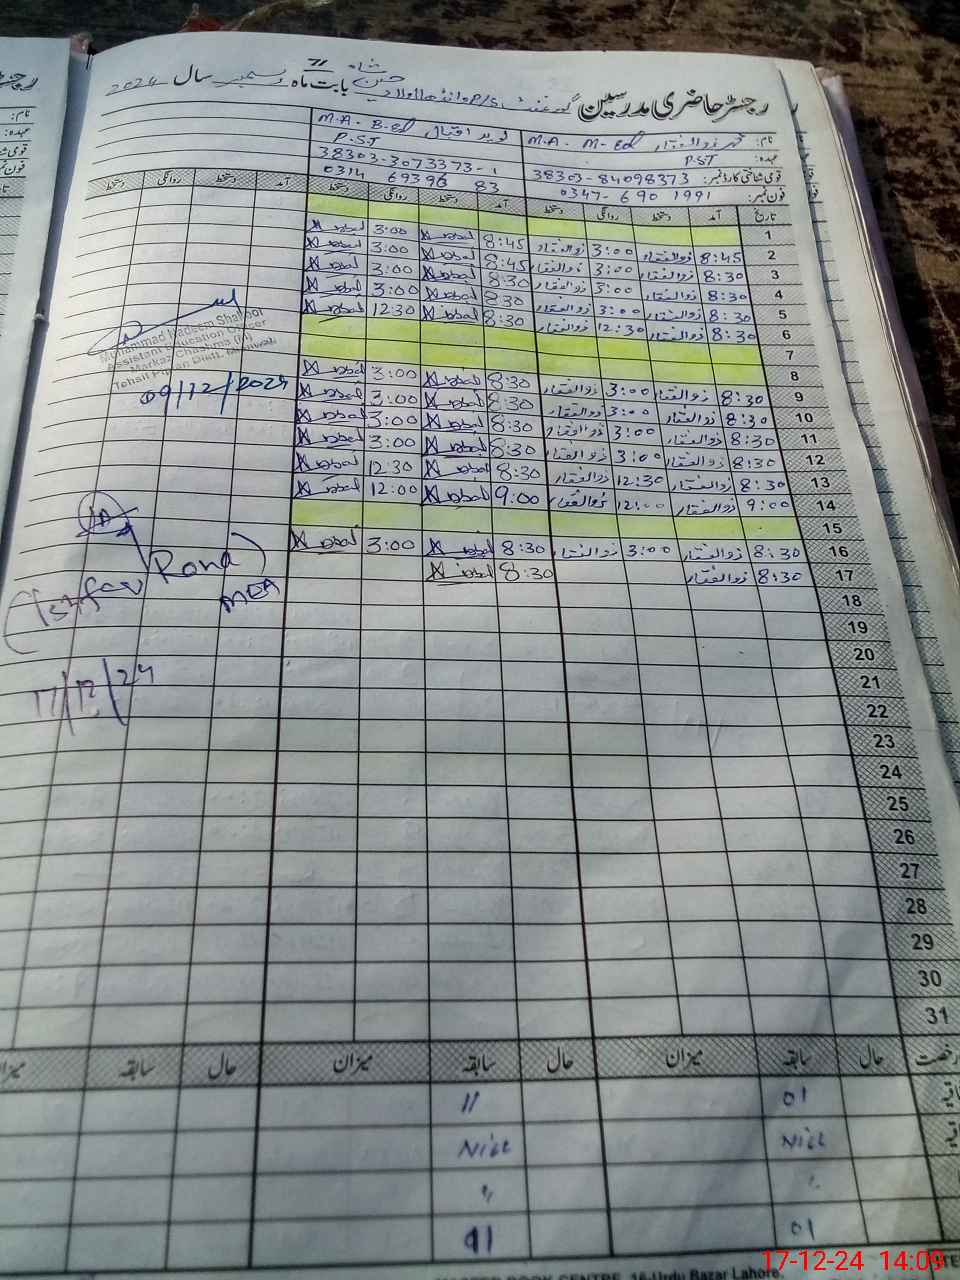 رجسٹر حاضری مدرسین گورنمنٹ P/S بابت ماہ دسمبر سال 2024
نام: محمد ذوالفقار M.A - M-Ed نوید اقبال M.A - B-Ed
عہدہ: PST P.S.T
قومی شناختی کارڈ نمبر: 38303-84098373 38303-3073373-1
فون نمبر: 0347-690 1991 0314 69396 83
تاریخ آمد دستخط روانگی دستخط آمد دستخط روانگی دستخط آمد دستخط روانگی دستخط
1
2 8:45 ذوالفقار 3:00 ذوالفقار 8:45 N iqbal 3:00 N iqbal
3 8:30 ذوالفقار 3:00 ذوالفقار 8:45 N iqbal 3:00 N iqbal
4 8:30 ذوالفقار 3:00 ذوالفقار 8:30 N iqbal 3:00 N iqbal
5 8:30 ذوالفقار 3:00 ذوالفقار 8:30 N iqbal 3:00 N iqbal
6 8:30 ذوالفقار 12:30 ذوالفقار 8:30 N iqbal 12:30 N iqbal
7
8
9 8:30 ذوالفقار 3:00 ذوالفقار 8:30 N iqbal 3:00 N iqbal
10 8:30 ذوالفقار 3:00 ذوالفقار 8:30 N iqbal 3:00 N iqbal
11 8:30 ذوالفقار 3:00 ذوالفقار 8:30 N iqbal 3:00 N iqbal
12 8:30 ذوالفقار 3:00 ذوالفقار 8:30 N iqbal 3:00 N iqbal
13 8:30 ذوالفقار 12:30 ذوالفقار 8:30 N iqbal 12:30 N iqbal
14 9:00 ذوالفقار 12:00 ذوالفقار 9:00 N iqbal 12:00 N iqbal
15
16 8:30 ذوالفقار 3:00 ذوالفقار 8:30 N iqbal 3:00 N iqbal
17 8:30 ذوالفقار 8:30 N iqbal
18
19
20
21
22
23
24
25
26
27
28
29
30
31
Muhammad Nadeem Shakoor
Assistant Education Officer
Markaz Chashma (M)
Tehsil Piplan Distt. Mianwali
09/12/2024
(Ishfaq Rana)
MEA
17/12/24
رخصت حال سابقہ میزان حال سابقہ میزان حال سابقہ میزان
01 11
Nill Nill
01 11
BOOK CENTRE, 16-Urdu Bazar Lahore
17-12-24 14:09